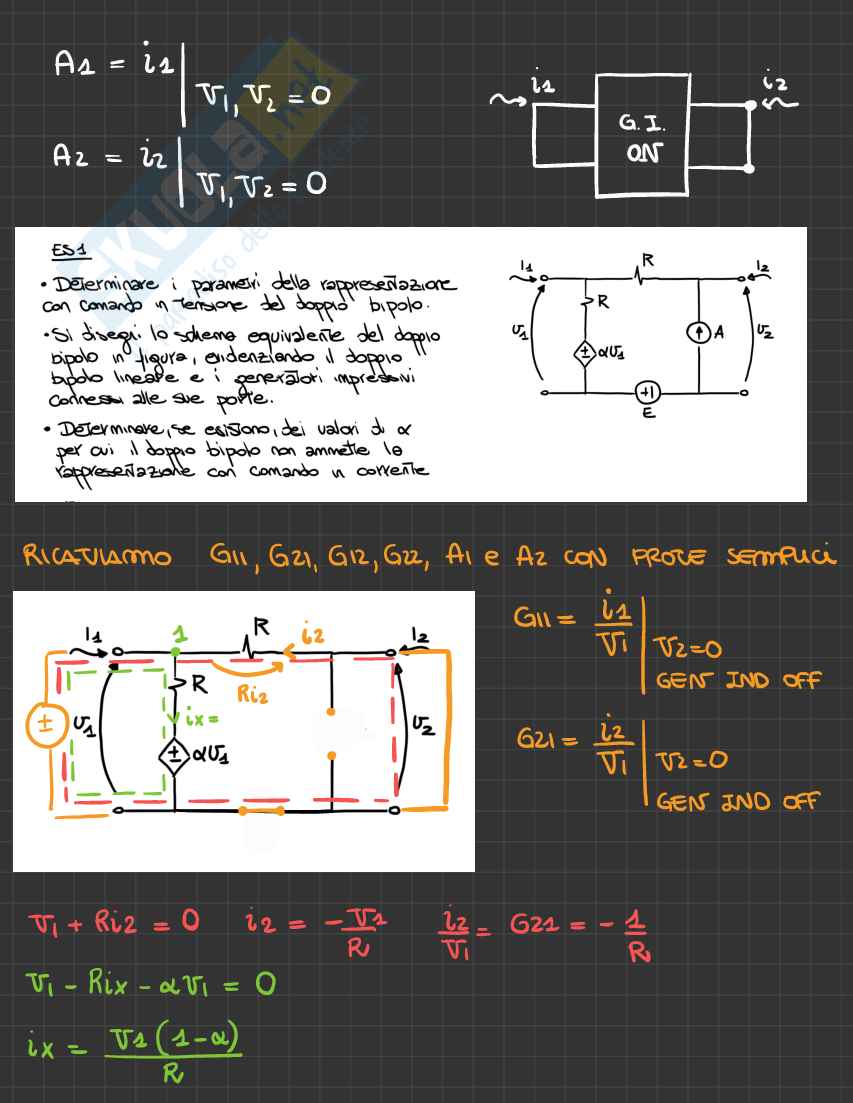 A1 = i1 | V1, V2 = 0
A2 = i2 | V1, V2 = 0
i1
i2
G.I.
ON
SKUOLA.net
ES1
• Determinare i parametri della rappresentazione
con comando in tensione del doppio bipolo.
• Si disegni lo schema equivalente del doppio
bipolo in figura, evidenziando il doppio
bipolo lineare e i generatori impressivi
connessi alle sue porte.
• Determinare, se esistono, dei valori di α
per cui il doppio bipolo non ammette la
rappresentazione con comando in corrente
I1
R
I2
R
V1
αV1
A
V2
E
RICAVIAMO G11, G21, G12, G22, A1 e A2 CON PROVE SEMPLICI
I1
1
R
i2
I2
R
Ri2
ix =
V1
αV1
V2
G11 = i1/V1 | V2=0 GEN IND OFF
G21 = i2/V1 | V2=0 GEN IND OFF
V1 + Ri2 = 0 i2 = -V1/R i2/V1 = G21 = - 1/R
V1 - Rix - αV1 = 0
ix = V1(1-α)/R